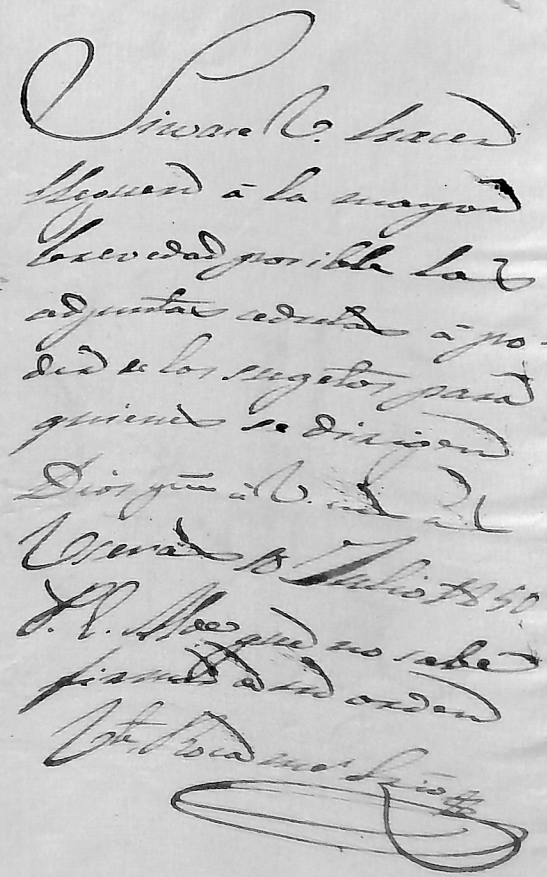 Sirvase V. hacer
lleguen á la mayor
brevedad posible las
adjuntas cedulas á po-
der de los sugetos para
quienes se dirigen
Dios gue á V. m. a.
Julio 1850
P. E. que no sabe
firmar á su orden
Roca Srio